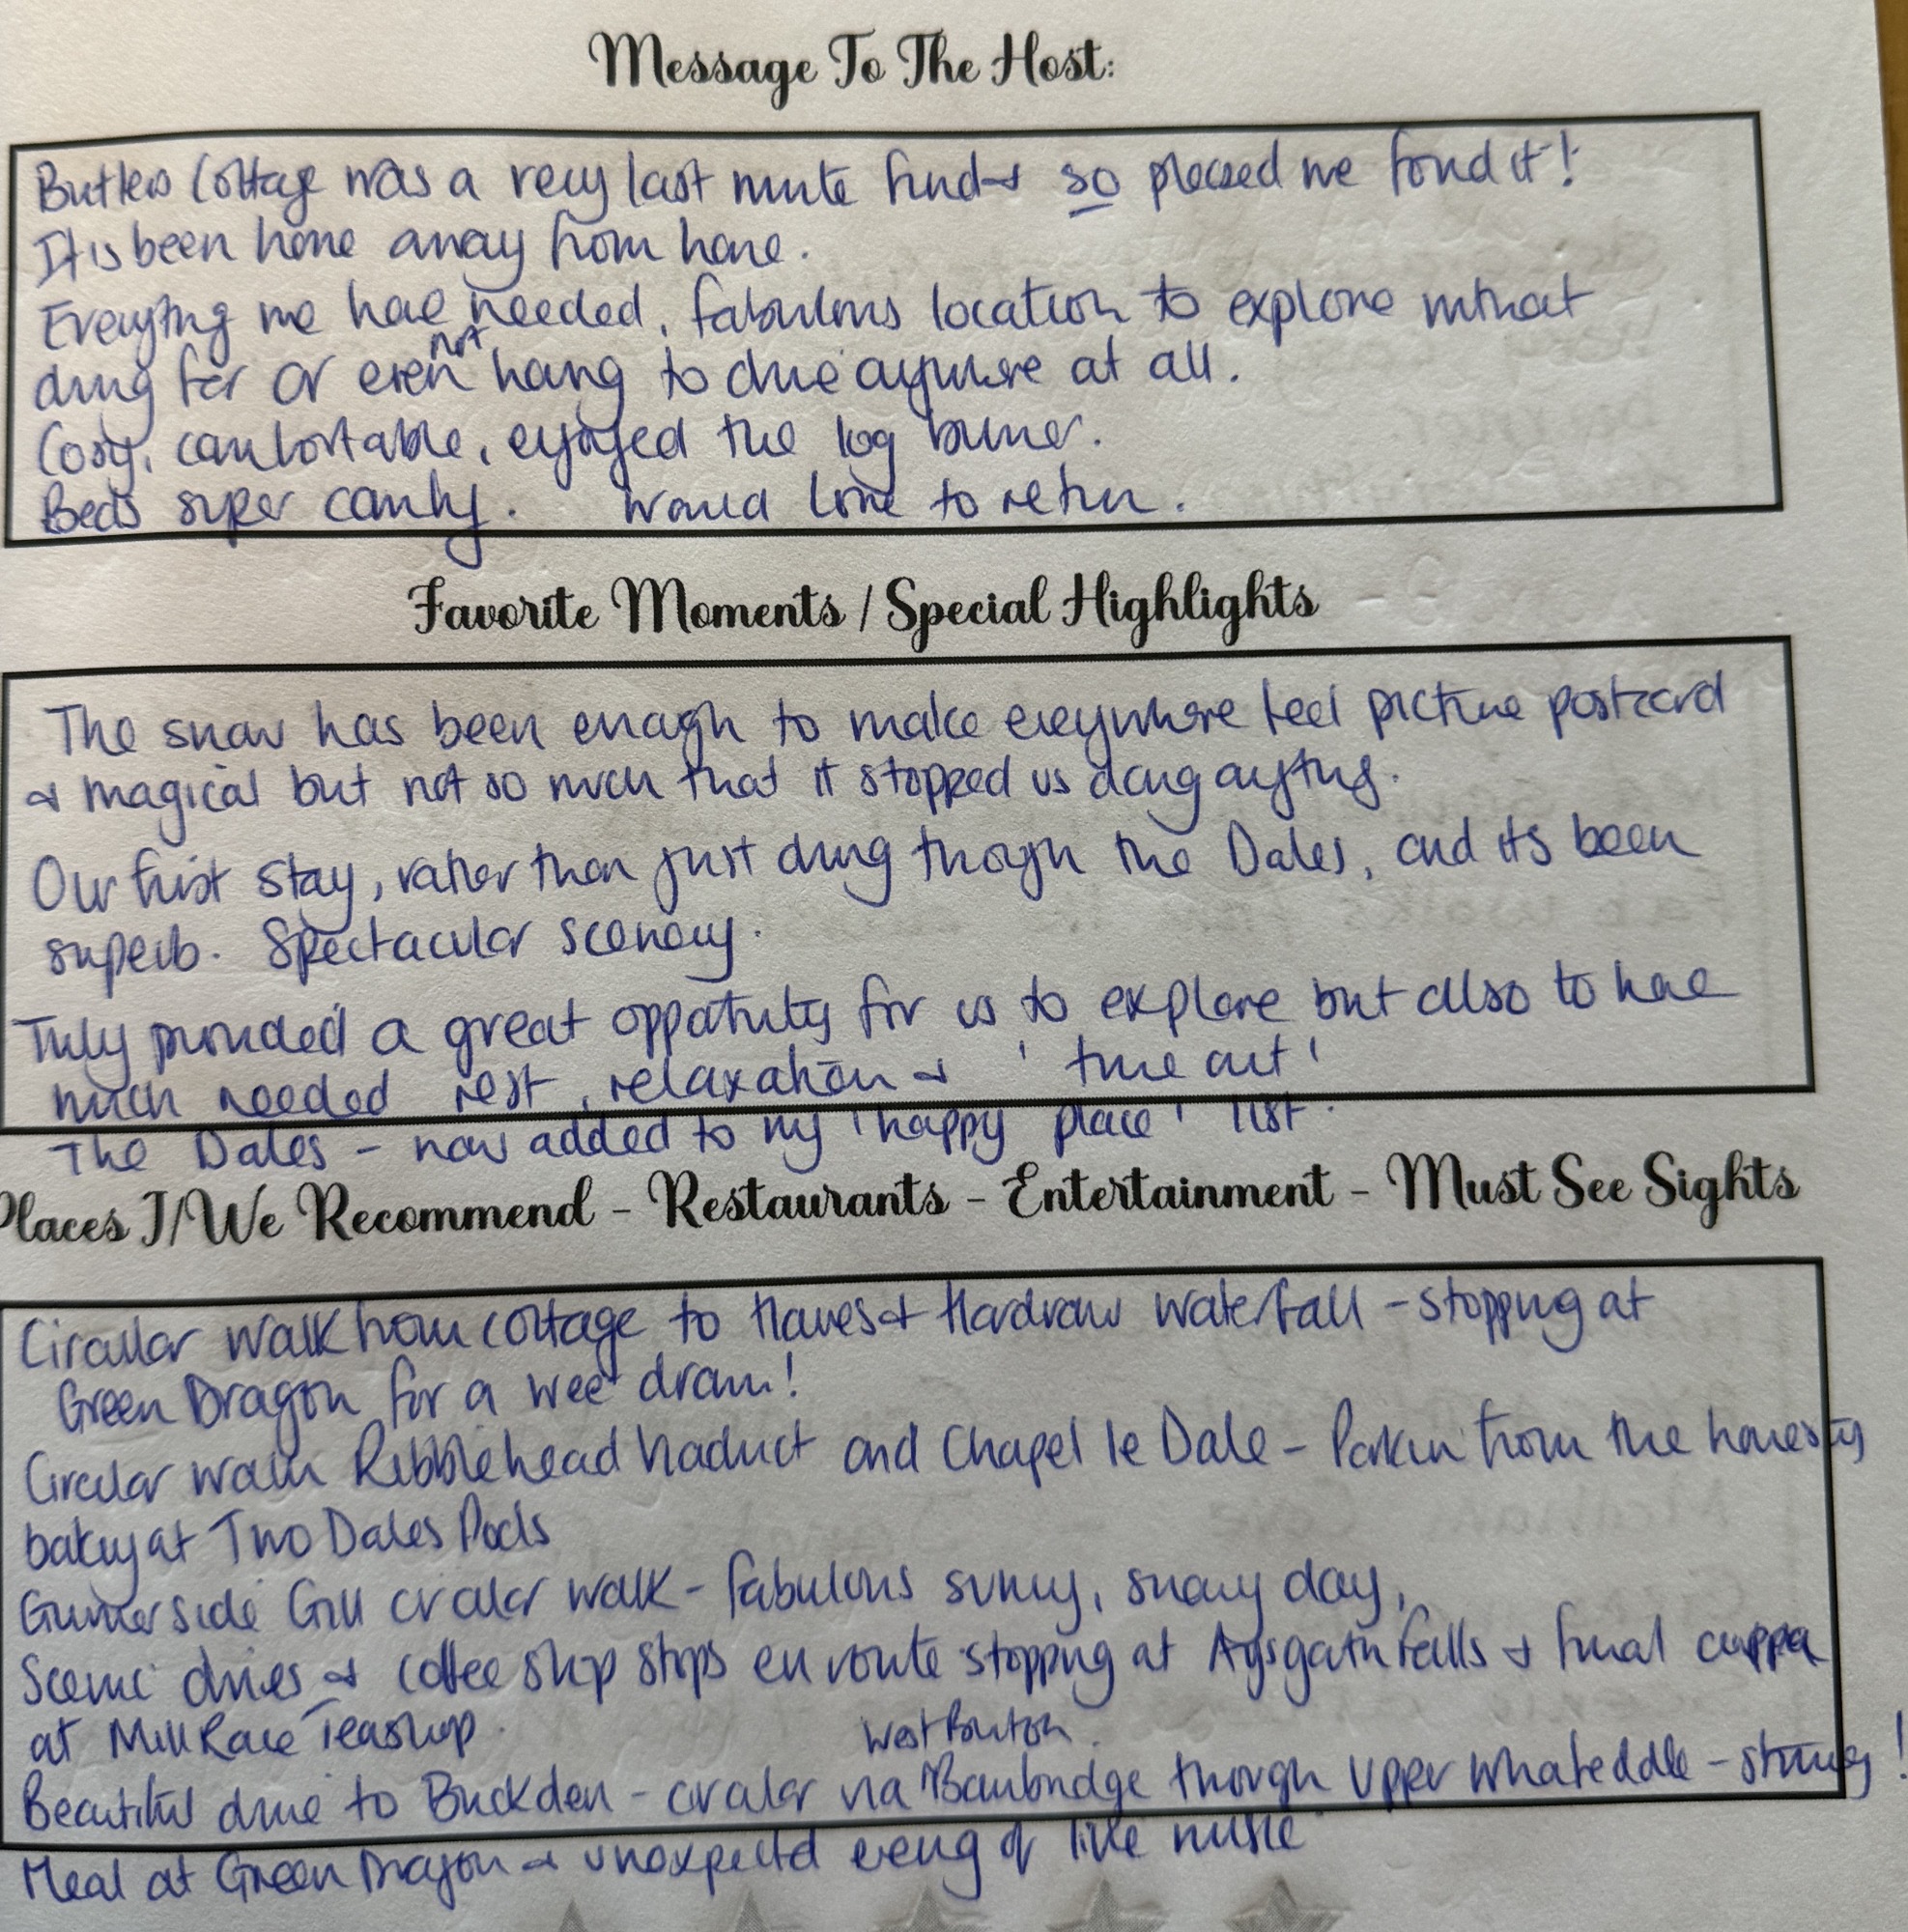 Message To The Host:
Butlers Cottage was a very last minute find & so pleased we found it!
It is been home away from home.
Everything we have needed, fabulous location to explore without
not
driving far or even having to drive anywhere at all.
Cosy, comfortable, enjoyed the log burner.
Beds super comfy. Would love to return.
Favorite Moments / Special Highlights
The snow has been enough to make everywhere feel picture postcard
& magical but not so much that it stopped us doing anything.
Our first stay, rather than just driving through the Dales, and its been
superb. Spectacular scenery.
Truly provided a great opportunity for us to explore but also to have
much needed rest, relaxation & 'time out'
The Dales - now added to my 'happy place' list.
Places I/We Recommend - Restaurants - Entertainment - Must See Sights
Circular walk from cottage to Hawes & Hardraw Waterfall - stopping at
Green Dragon for a wee dram!
Circular walk Ribblehead Viaduct and Chapel le Dale - Parkin from the honesty
bakery at Two Dales Pods
Gunnerside Gill circular walk - fabulous sunny, snowy day,
Scenic drives & coffee shop stops en route stopping at Aysgarth Falls & final cuppa
at Mill Race Teashop.
West Burton.
Beautiful drive to Buckden - circular via Bainbridge through Upper Whafeddle - stunning!
Meal at Green Dragon & unexpected evening of live music